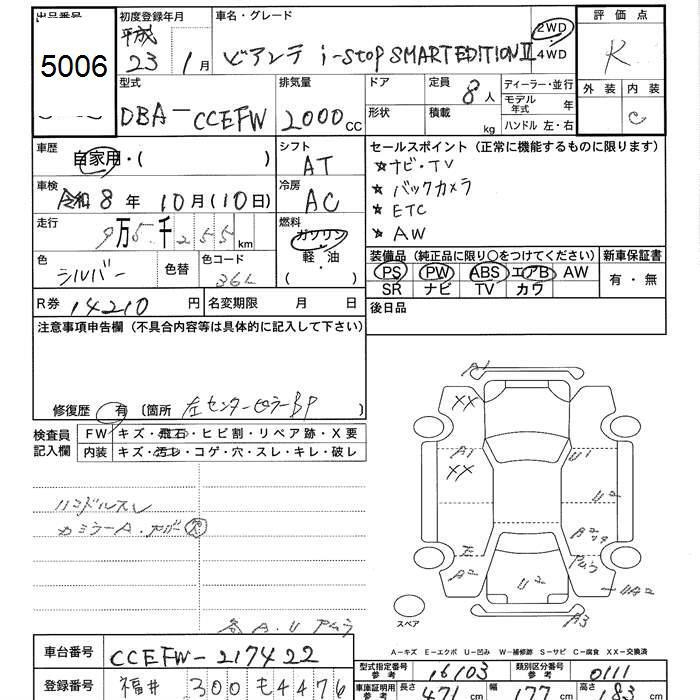 出品番号 5006
初度登録年月 平成 23 1月
車名・グレード ビアンテ i-stop SMARTEDITIONⅡ 2WD 4WD
評価点 R
外装 内装 C
型式 DBA-CCEFW
排気量 2000cc
ドア 形状
定員 8人 積載 kg
ディーラー・並行
モデル年式 年
ハンドル 左・右
車歴 自家用・( )
シフト AT
セールスポイント(正常に機能するものに限ります)
★ナビ・TV
★バックカメラ
★ETC
★AW
車検 令和8年10月(10日)
冷房 AC
走行 9万5千255km
燃料 ガソリン 軽・油 ( )
色 シルバー 色替 色コード 36L
装備品(純正品に限り○をつけてください) 新車保証書
PS PW ABS エアB AW 有・無
SR ナビ TV カワ
R券 14210円 名変期限 月 日
後日品
注意事項申告欄(不具合内容等は具体的に記入して下さい)
修復歴 有 〔箇所 左センターピラーBP 〕
検査員記入欄
FW キズ・飛石・ヒビ割・リペア跡・X要
内装 キズ・汚レ・コゲ・穴・スレ・キレ・破レ
ハンドルスレ
A1
XX
A1
XX
U1
U2
A2
U2
UA2
A3
スペア
A-キズ E-エクボ U-凹み W-補修跡 S-サビ C-腐食 XX-交換済
車台番号 CCEFW-217422
登録番号 福井 300 も4476
型式指定番号 参考 16103 類別区分番号 参考 0111
車庫証明用 参考 長さ 471cm 幅 177cm 高さ 183cm